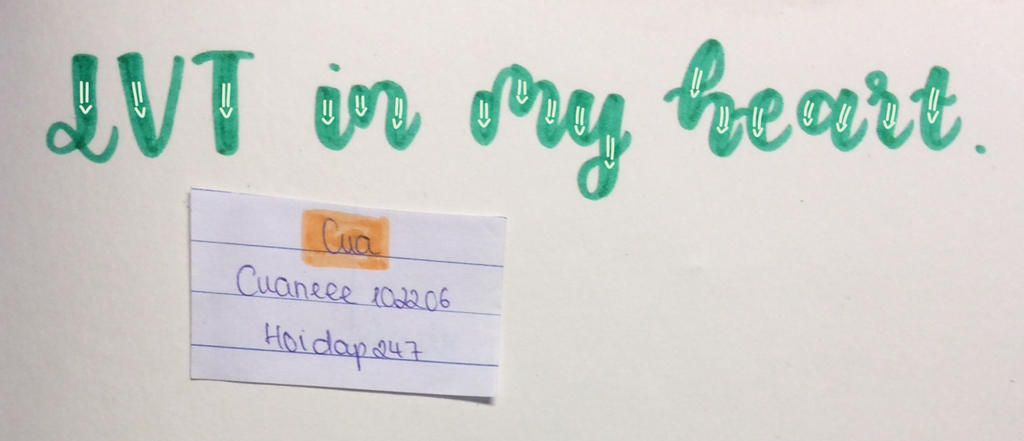 LVT in my heart.
Cua
Cuaneee 102206
Hoidap247